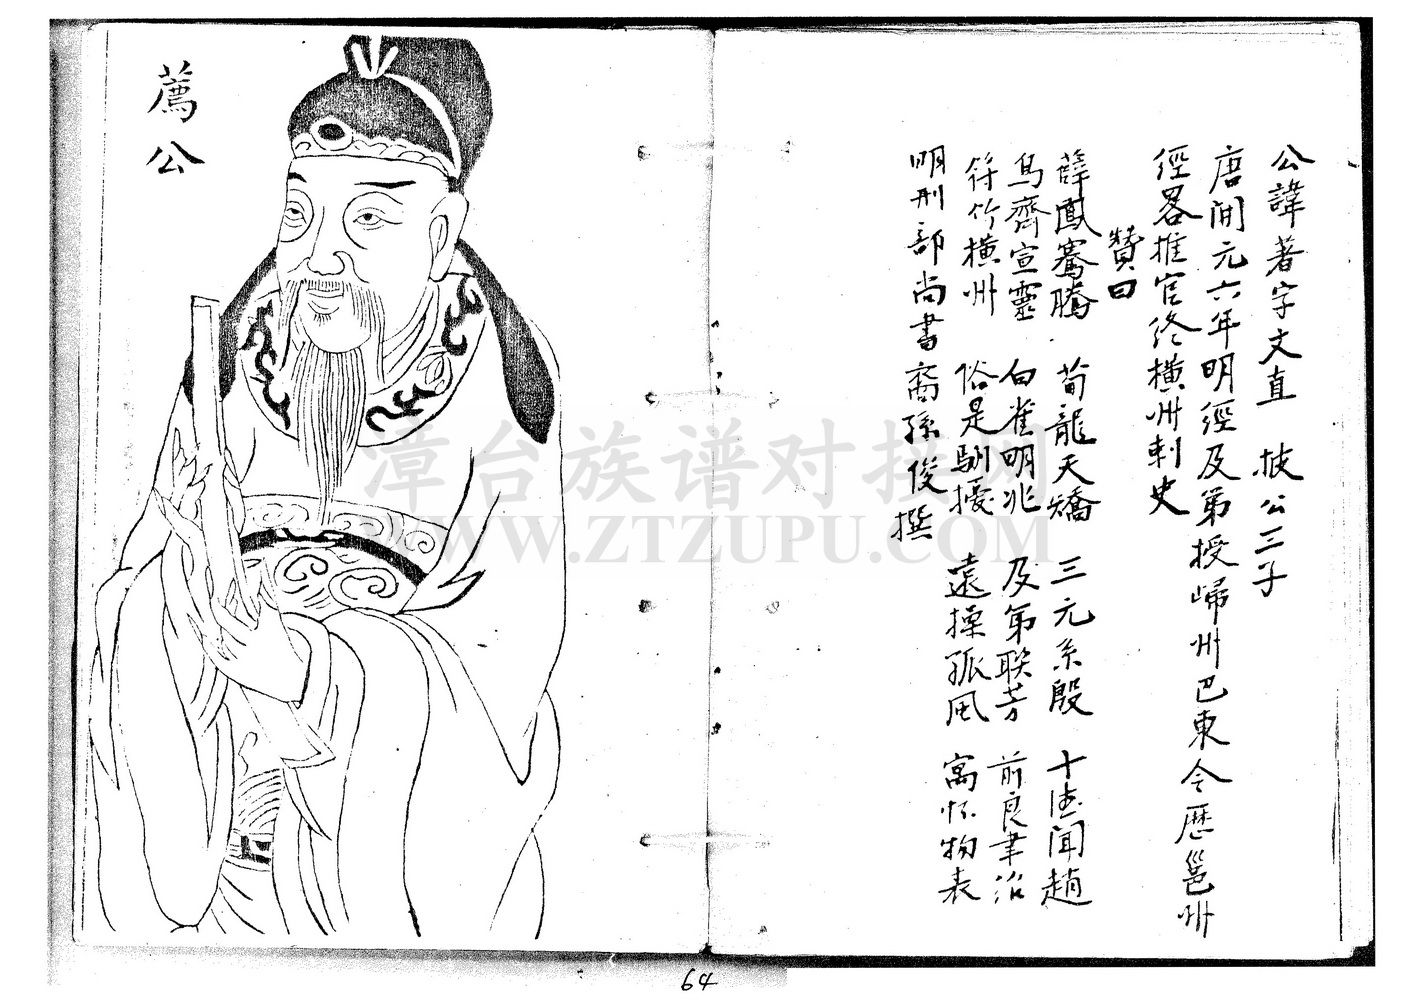 公諱著字文直　披公三子
唐開元六年明經及第授歸州巴東令歷邕州
經畧推官終橫州刺史
贊曰
薛鳳騫騰　荀龍天矯　三元系殷　十德聞趙
烏齊宣靈　白雀明兆　及第聯芳　前良聿治
符竹橫州　俗是馴擾　遠操孤風　寓懷物表
明刑部尚書裔孫俊撰
薦公
漳台族谱对接网
WWW.ZTZUPU.COM
64